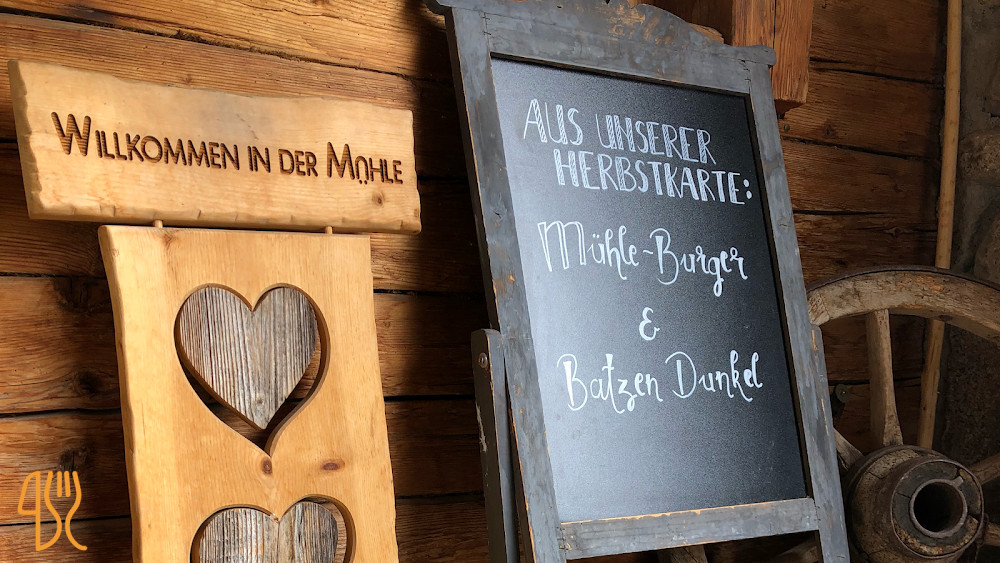 WILLKOMMEN IN DER MÜHLE
AUS UNSERER
HERBSTKARTE:
Mühle-Burger
&
Batzen Dunkel